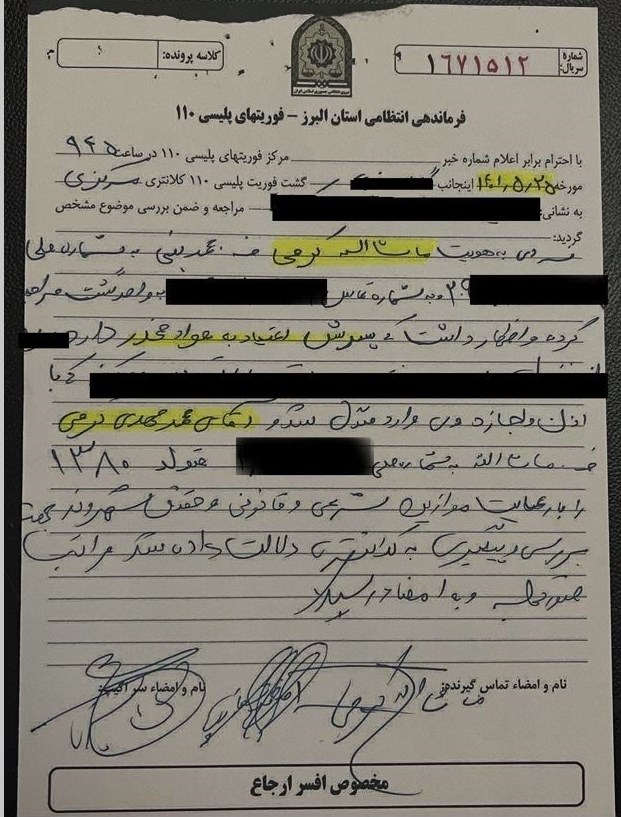 شماره سریال: ۱۶۷۱۵۱۲
کلاسه پرونده:
فرماندهی انتظامی استان البرز – فوریتهای پلیسی ۱۱۰
با احترام برابر اعلام شماره خبر مرکز فوریتهای پلیسی ۱۱۰ در ساعت ۹۴۵
مورخه ۱۴۰۱/۵/۲۵ اینجانب گشت فوریت پلیسی ۱۱۰ کلانتری مرکزی
به نشانی: مراجعه و ضمن بررسی موضوع مشخص
گردید:
به هویت ماشااله کرمی به شماره ملی
و به شماره تماس به واحد گشت مراجعه
کرده و اظهار داشت که پسرش اعتیاد به مواد مخدر دارد
که با
اذن و اجازه وی وارد منزل شد و آقای محمدمهدی کرمی
ف ماشااله به شماره ملی متولد ۱۳۸۰
را با رعایت موازین شرعی و قانونی و حقوق شهروندی جهت
بررسی و پیگیری به کلانتری دلالت داده شد مراتب
صورتجلسه و به امضاء رسید
نام و امضاء تماس گیرنده:
ماشااله کرمی
نام و امضاء سر اکیپ:
مخصوص افسر ارجاع